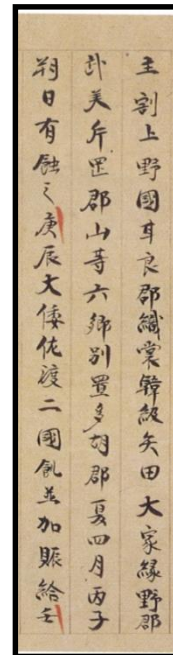 亥割上野國甘良郡織裳韓級矢田大家緑野郡
武美片罡郡山等六郷別置多胡郡夏四月丙子
朔日有蝕之庚辰大倭佐渡二國飢並加賑給壬